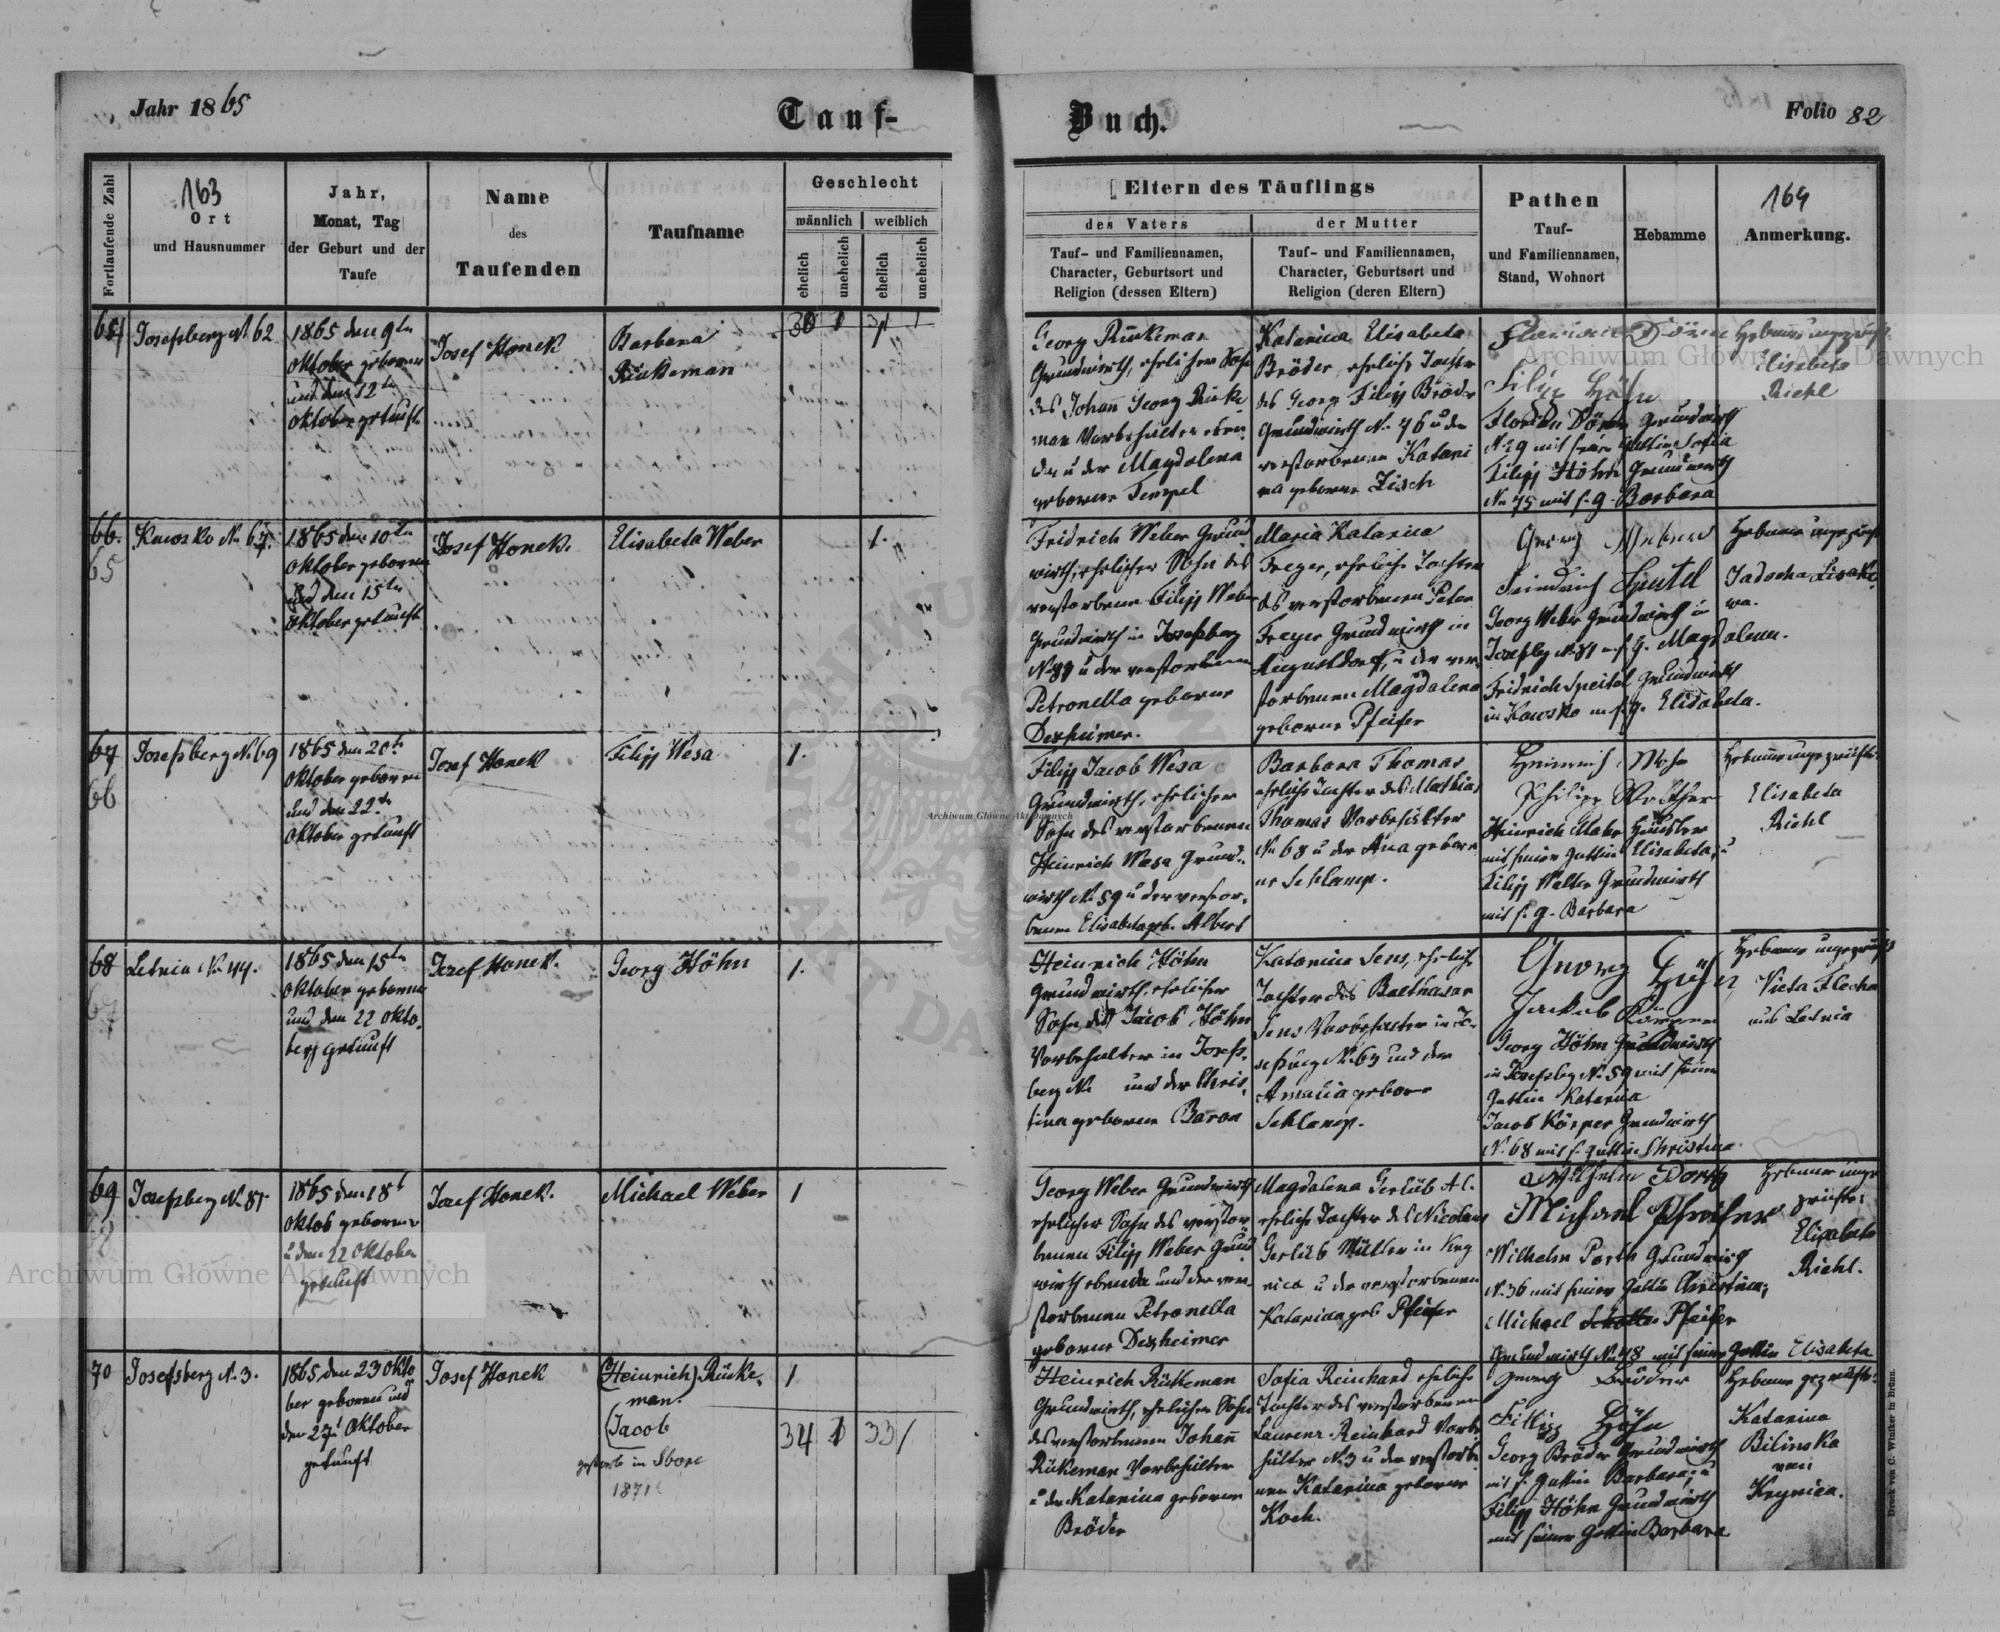 Jahr 1865
Tauf-
Buch.
Folio 82
Fortlaufende Zahl
163
Ort
und Hausnummer
Jahr,
Monat, Tag
der Geburt und der
Taufe
Name
des
Taufenden
Taufname
Geschlecht
männlich
weiblich
ehelich
unehelich
ehelich
unehelich
Eltern des Täuflings
des Vaters
Tauf- und Familiennamen,
Character, Geburtsort und
Religion (dessen Eltern)
der Mutter
Tauf- und Familiennamen,
Character, Geburtsort und
Religion (deren Eltern)
Pathen
Tauf-
und Familiennamen,
Stand, Wohnort
Hebamme
164
Anmerkung.
Josefsberg N. 62
1865 den 9ten
Oktober geboren
und den 12ten
Oktober getauft
Josef Honek
Barbara
Rükeman
30 1 31 1
Georg Rükeman
Grundwirth, ehelicher Sohn
des Johann Georg Rüke
man Vorbehälter eben
da u der Magdalena
geborene Tempel
Katarina Elisabeta
Bröder, eheliche Tochter
des Georg Filipp Bröder
Grundwirth N. 46 u der
verstorbenen Katari
na geborene Zisch
Filip Höhn
Florian Dörr Grundwirth
N. 29 mit seiner Gattin Sofia
Filipp Höhn Grundwirth
N. 75 mit s. g. Barbara
Hebamme ungeprüft
Elisabeta
Riehl
66.
65
Kawsko N. 67.
1865 den 10ten
Oktober geboren
und den 15ten
Oktober getauft
Josef Honek.
Elisabeta Weber
1.
Fridrich Weber Grund
wirth, ehelicher Sohn des
verstorbenen Filipp Weber
Grundwirth in Josefsberg
N. 81 u der verstorbenen
Petronella geborene
Dexheimer.
Maria Katarina
Freyer, eheliche Tochter
des verstorbenen Peter
Freyer Grundwirth in
Augustdorf, u der ver
storbenen Magdalena
geborene Pfeifer
Georg Weber
Georg Weber Grundwirth in
Josefsbg N. 81 m. s. g. Magdalena.
Fridrich Speitel Grundwirth
in Kawsko m. s. g. Elisabeta.
Hebamme ungeprüft
67
66
Josefsberg N. 69
1865 den 20ten
Oktober geboren
und den 22ten
Oktober getauft
Josef Honek
Filipp Wesa
1.
Filipp Jacob Wesa
Grundwirth, ehelicher
Sohn des verstorbenen
Heinrich Wesa Grund-
wirth N. 59 u der verstor-
benen Elisabeta geb. Albert
Barbara Thomas
eheliche Tochter des Mathias
Thomas Vorbehälter
N. 68 u der Ana gebore
ne Schlamp.
Philipp Walther
mit seiner Gattin Elisabeta, u
Filipp Walter Grundwirth
mit s. g. Barbara
Hebamme ungeprüft
Elisabeta
Riehl
68
Letnia N. 44.
1865 den 15ten
Oktober geboren
und den 22 Okto
ber getauft
Josef Honek.
Georg Höhn
1.
Heinrich Höhn
Grundwirth, ehelicher
Sohn des Jacob Höhn
Vorbehälter in Josefs
berg N. und der Chris
tina geborene Baron
Katarina Sens, eheliche
Tochter des Balthasar
Sens Vorbehälter in Jo-
sefsberg N. 63 und der
Amalia geborene
Schlamp.
Georg Höhn
Georg Höhn Grundwirth
in Josefsbg N. 59 mit seiner
Gattin Katarina
Jacob Körper Grundwirth
N. 68 mit s. Gattin Christina
Hebamme ungeprüft
Flecha
aus Letnia
69
Josefsberg N. 81
1865 den 18t
Oktob geboren
u den 22 Oktober
getauft
Josef Honek.
Michael Weber
1
Georg Weber Grundwirth
ehelicher Sohn des verstor
benen Filipp Weber Grund
wirth ebenda und der ver-
storbenen Petronella
geborene Dexheimer
Magdalena Gerlüb A. C.
eheliche Tochter des Nicolaus
Gerlüb Müller in Kry
nica u der verstorbenen
Katarina geb. Pfeifer
Michael Pfeifer
Wilhelm Porth Grundwirth
N. 36 mit seiner Gattin Christina,
Michael Pfeifer
Grundwirth N. 48 mit seiner Gattin Elisabeta
Hebamme unge
prüfte:
Elisabeta
Riehl.
70
Josefsberg N. 3.
1865 den 23 Okto
ber geboren und
den 27t Oktober
getauft
Josef Honek
(Heinrich) Rüke,
man.
(Jacob
1871
1
34 1 33 1
Heinrich Rükeman
Grundwirth, ehelicher Sohn
des verstorbenen Johann
Rükeman Vorbehälter
u der Katarina geborene
Bröder
Sofia Reinhard eheliche
Tochter des verstorbenen
Laurenz Reinhard Vorbe
hälter N. 3 u der verstorbe
nen Katarina geborene
Koch.
Georg Bröder
Filipp Höhn
Georg Bröder Grundwirth
mit s. Gattin Barbara, u
Filipp Höhn Grundwirth
mit seiner Gattin Barbara
Hebamme geprüfte:
Katarina
Bilinska
von
Krynica.
Druck von C. Winiker in Brünn.
Archiwum Główne Akt Dawnych
Archiwum Główne Akt Dawnych
Archiwum Główne Akt Dawnych